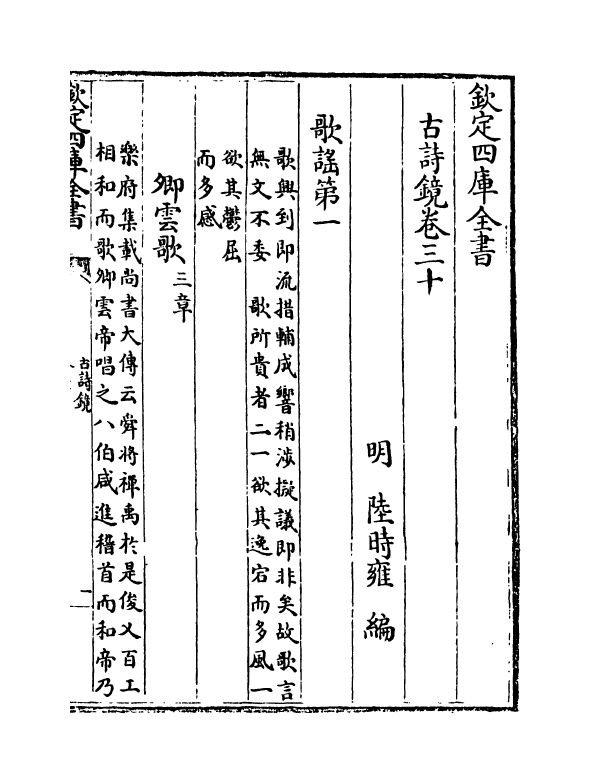 欽定四庫全書
古詩鏡卷三十
明 陸時雍 編
歌謠第一
歌興到即流措輔成響稍涉擬議即非矣故歌言
無文不委 歌所貴者二一欲其逸宕而多風一
欲其鬱屈
而多感
卿雲歌三章
樂府集載尚書大傳云舜將禪禹於是俊乂百工
相和而歌卿雲帝唱之八伯咸進稽首而和帝乃
欽定四庫全書
古詩鏡
一